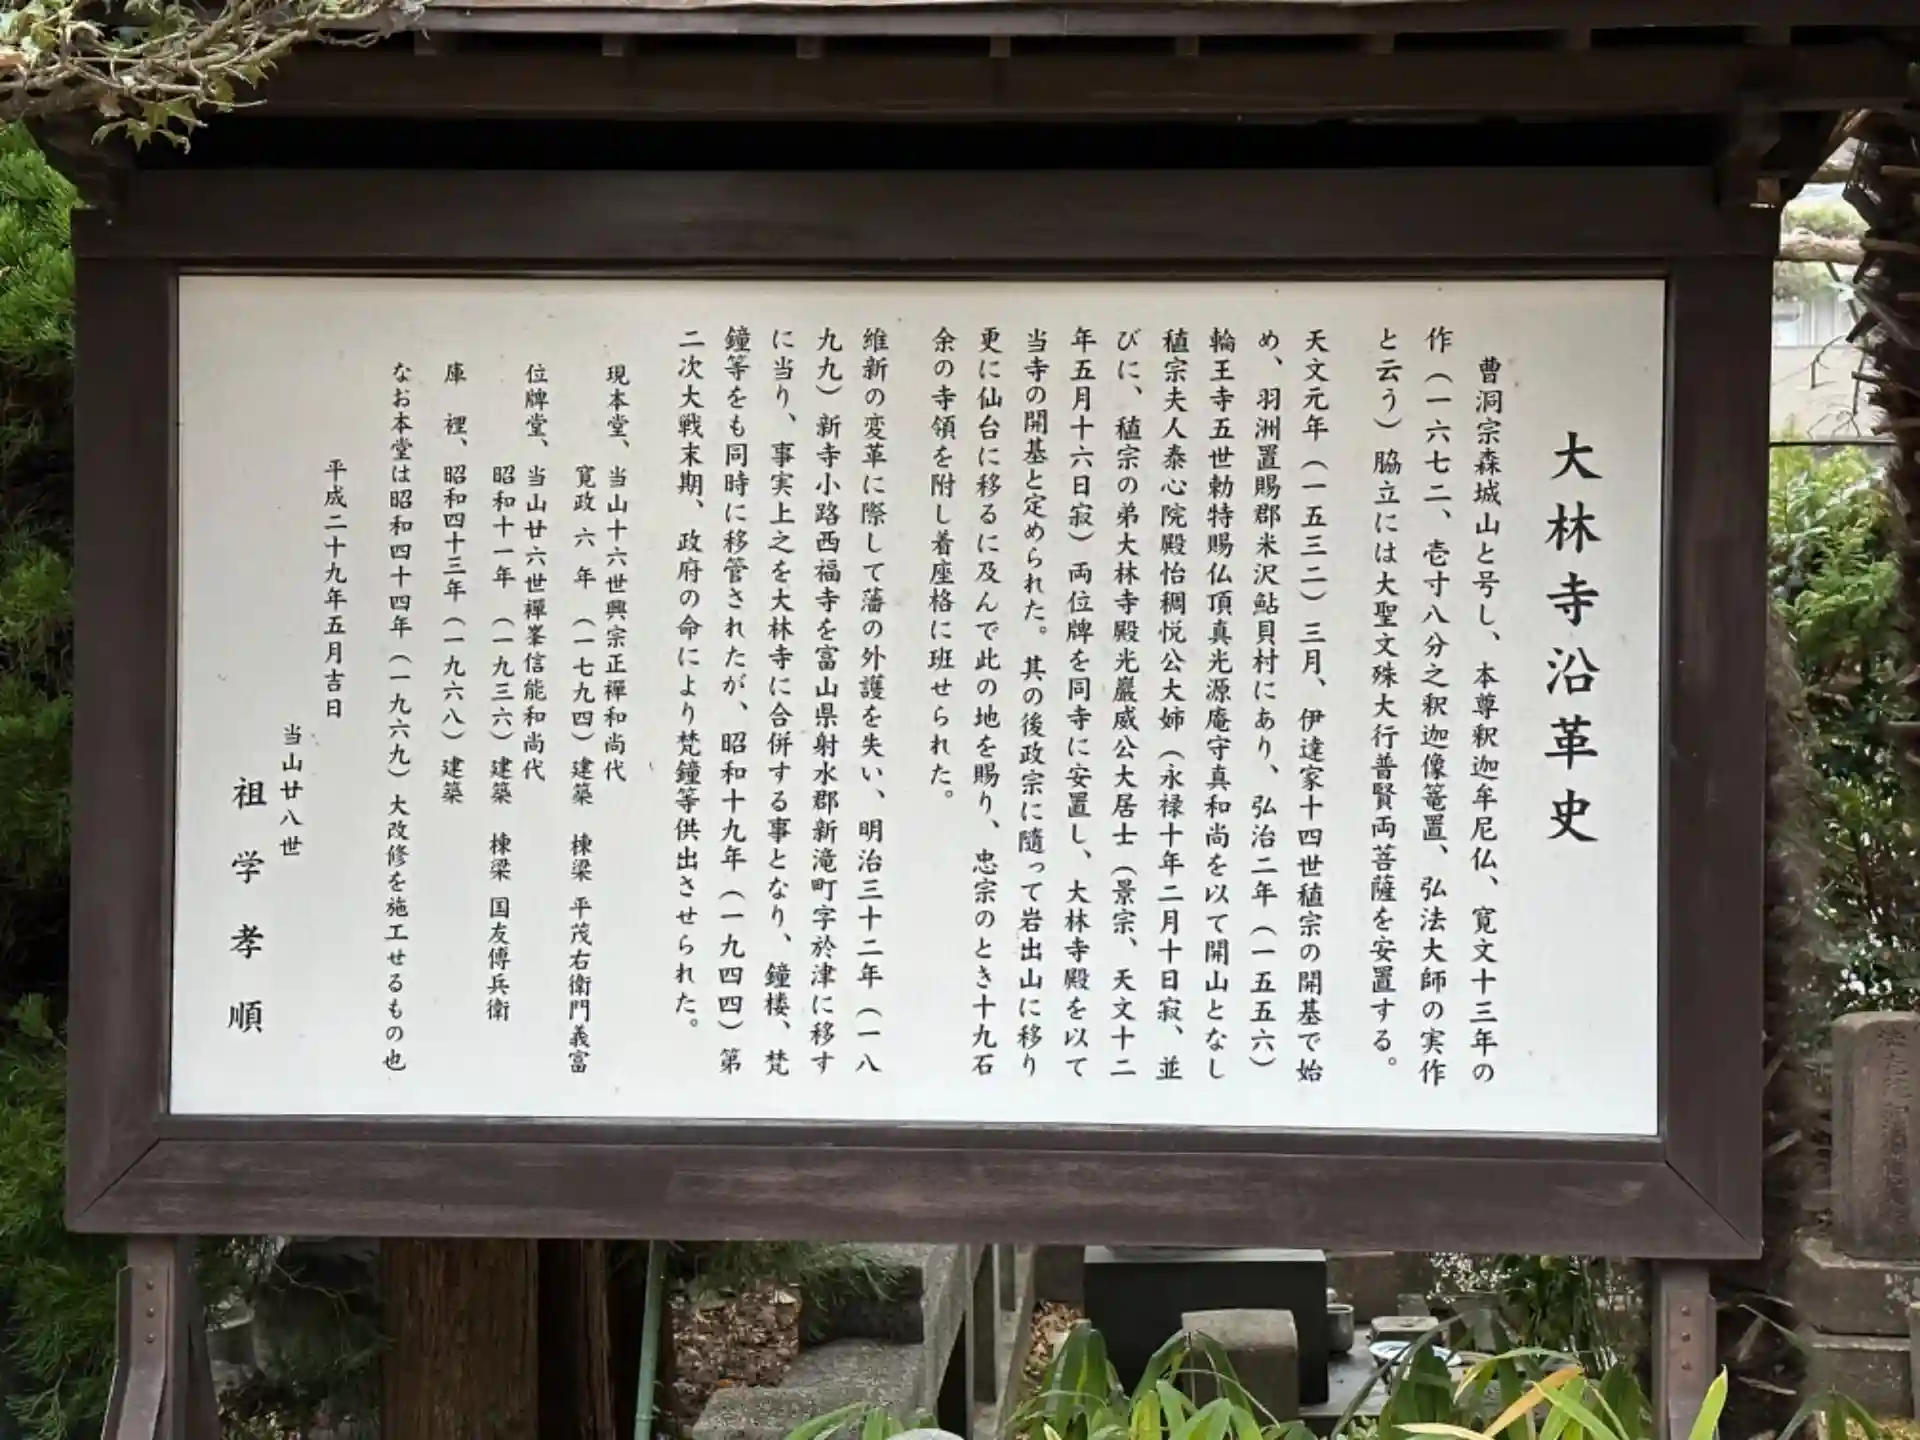 大林寺沿革史
曹洞宗森城山と号し、本尊釈迦牟尼仏、寛文十三年の
作（一六七二、壱寸八分之釈迦像篭置、弘法大師の実作
と云う）脇立には大聖文殊大行普賢両菩薩を安置する。
天文元年（一五三二）三月、伊達家十四世稙宗の開基で始
め、羽洲置賜郡米沢鮎貝村にあり、弘治二年（一五五六）
輪王寺五世勅特賜仏頂真光源庵守真和尚を以て開山となし
稙宗夫人泰心院殿怡稠悦公大姉（永禄十年二月十日寂、並
びに、稙宗の弟大林寺殿光巖威公大居士（景宗、天文十二
年五月十六日寂）両位牌を同寺に安置し、大林寺殿を以て
当寺の開基と定められた。其の後政宗に隨って岩出山に移り
更に仙台に移るに及んで此の地を賜り、忠宗のとき十九石
余の寺領を附し着座格に班せられた。
維新の変革に際して藩の外護を失い、明治三十二年（一八
九九）新寺小路西福寺を富山県射水郡新滝町字於津に移す
に当り、事実上之を大林寺に合併する事となり、鐘楼、梵
鐘等をも同時に移管されたが、昭和十九年（一九四四）第
二次大戦末期、政府の命により梵鐘等供出させられた。
現本堂、当山十六世興宗正禅和尚代
寛政六年（一七九四）建築 棟梁 平茂右衛門義富
位牌堂、当山廿六世禅峯信能和尚代
昭和十一年（一九三六）建築 棟梁 国友傳兵衛
庫裡、昭和四十三年（一九六八）建築
なお本堂は昭和四十四年（一九六九）大改修を施工せるもの也
平成二十九年五月吉日
当山廿八世
祖学孝順